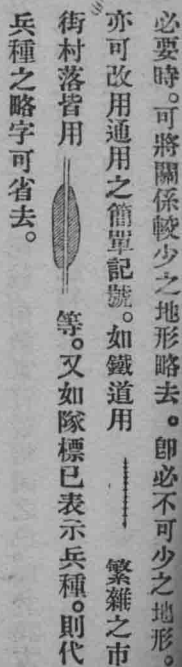 必要時。可將關係較少之地形略去。卽必不可少之地形。
亦可改用通用之簡單記號。如鐵道用 繁雜之市
街村落皆用 等。又如隊標已表示兵種。則代
兵種之略字可省去。